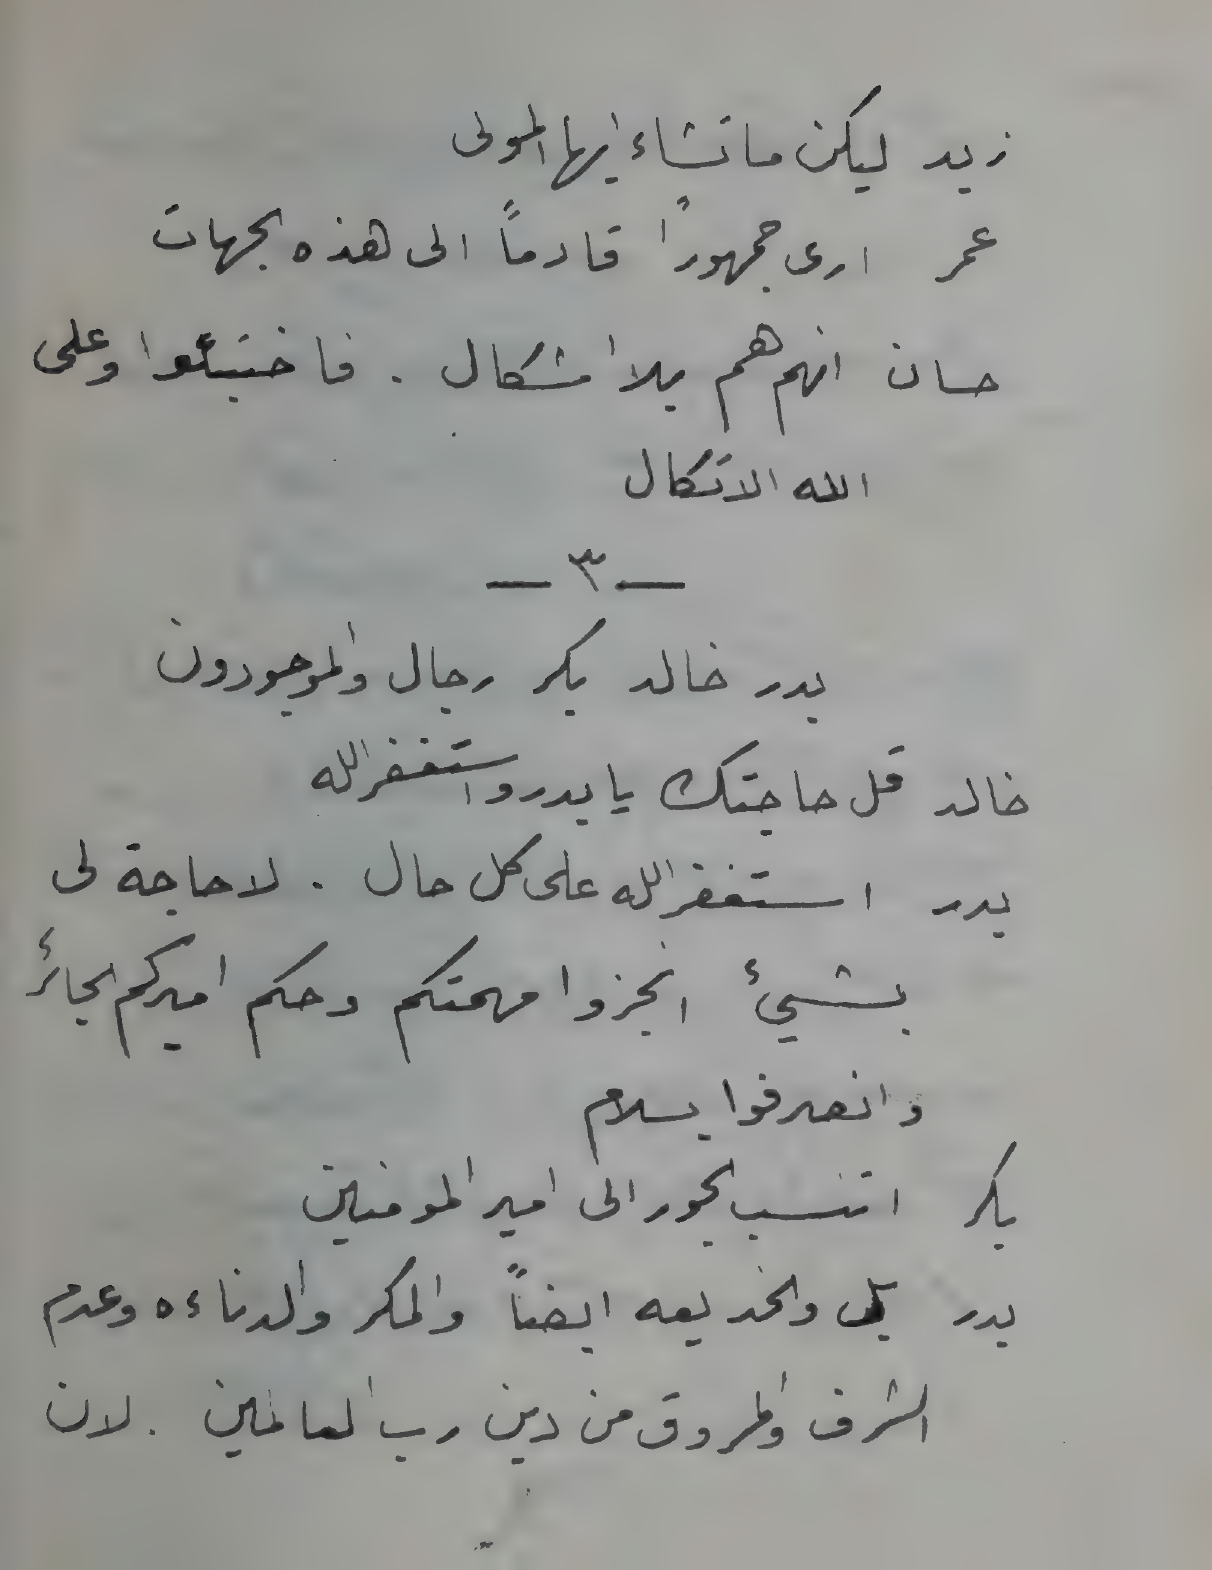 زيد ليكن ما تشاء ايها المولى
عمر ارى جمهوراً قادماً الى هذه الجهات
حسان انهم هم بلا اشكال . فاختبئوا وعلى
الله الاتكال
— ٣ —
بدر خالد بكر رجال والموجودون
خالد قل حاجتك يا بدر واستغفر الله
بدر استغفر الله على كل حال . لا حاجة لى
بشيئ انجزوا مهمتكم وحكم اميركم الجائر
وانصرفوا بسلام
بكر اتنسب الجور الى امير المومنين
بدر بل والخديعه ايضاً والمكر والدناءه وعدم
الشرف والمروق من دين رب العالمين . لان